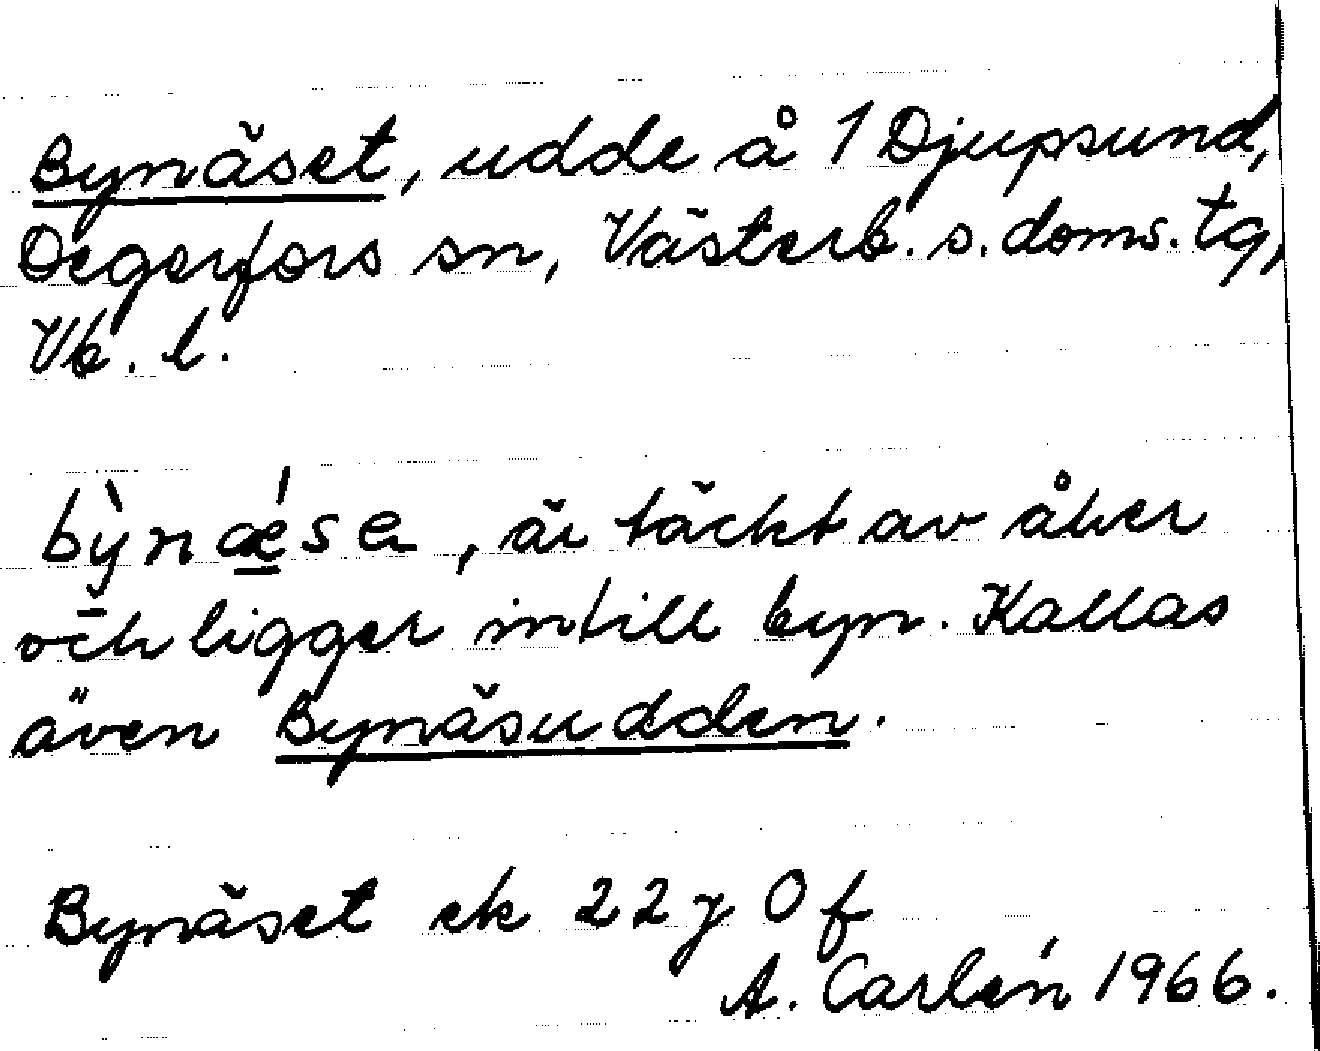 Bynäset, udde å 1 Djupsund,
Degerfors sn, Västerb. s. doms. tg,
Vb. l.
bỳnǽsa, är täckt av åker
och ligger intill byn. Kallas
även Bynäsudden.
Bynäset ek 22 j 0 f
A. Carlén 1966.